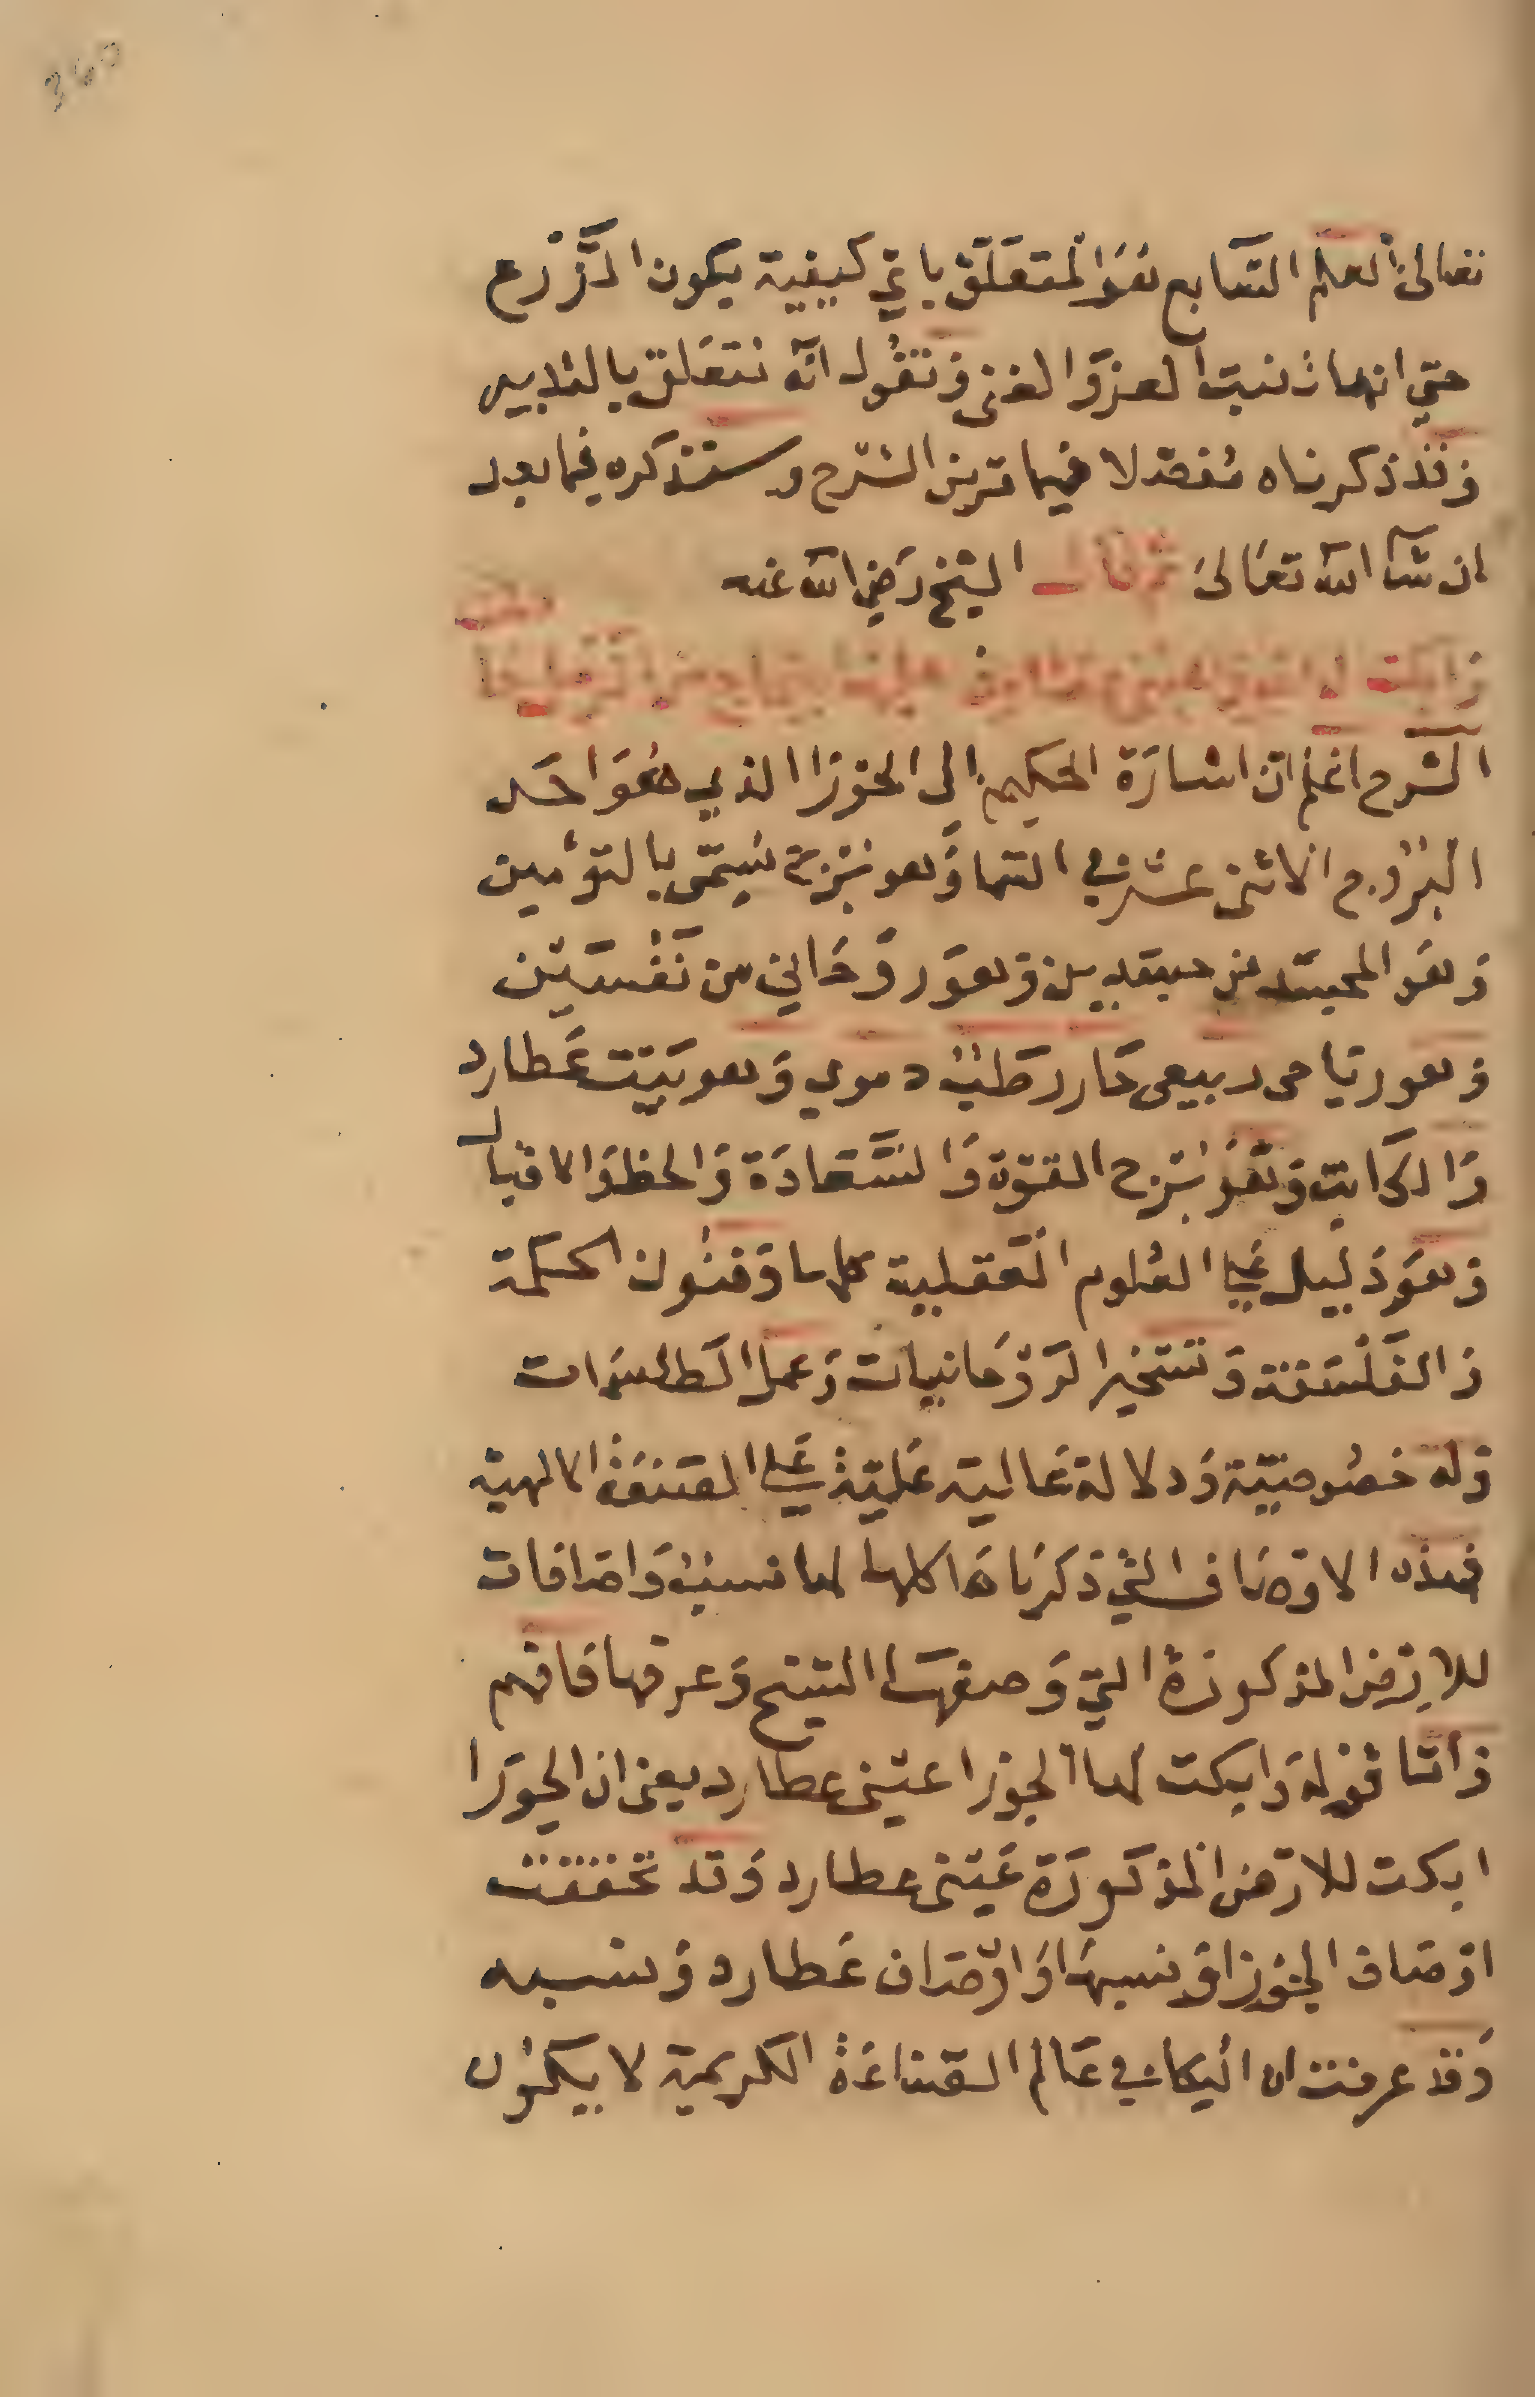 360
تعالى العلم السابع هو المتعلق باي كيفية يكون الزرع
حتي انها تنبت العز والغنى ونقول انه نتعلق بالتدبير
وقد ذكرناه مفصلا فيما تر من الشرح وسنذكره فيما بعد
ان شا الله تعالى ثم قال الشيخ رضي الله عنه
وابكت لها
الشرح اعلم ان اشارة الحكيم الى الجوزا الذي هو احد
البروج الاثنى عشر في السما وهو برج يسمى بالتوءمين
وهو المجسد من جسدين وهو روحاني من نفسين
وهو رياحى ربيعى حار رطب دموي وهو بيت عطارد
والكاتب وهو برج القوة والسعادة والحظ والاقبال
وهو دليل على العلوم العقلية كلها وفنون الحكمة
والفلسفة وتسخير الروحانيات وعمل الطلسمات
وله خصوصية ودلالة عالية علية على الصنعة الالهية
فهذه الاوصاف التي ذكرناها كلها لها نسب واضافات
للارض المذكورة التي وصفها الشيخ وعرفها فافهم
واما قوله وابكت لها الجوزا عينى عطارد يعنى ان الجوزا
ابكت للارض المذكورة عينى عطارد وقد تحققت
اوصاف الجوزا ونسبها واوصاف عطارد ونسبه
وقد عرفت ان البكا في عالم الصناعة الكريمة لا يكون